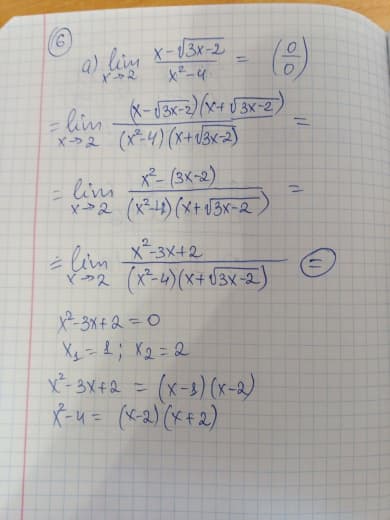 6
a) lim x→2 (x-√(3x-2))/(x²-4) = (0/0)
= lim x→2 ((x-√(3x-2))(x+√(3x-2)))/((x²-4)(x+√(3x-2))) =
= lim x→2 (x²-(3x-2))/((x²-4)(x+√(3x-2))) =
= lim x→2 (x²-3x+2)/((x²-4)(x+√(3x-2))) =
x²-3x+2=0
x₁=1; x₂=2
x²-3x+2 = (x-1)(x-2)
x²-4= (x-2)(x+2)